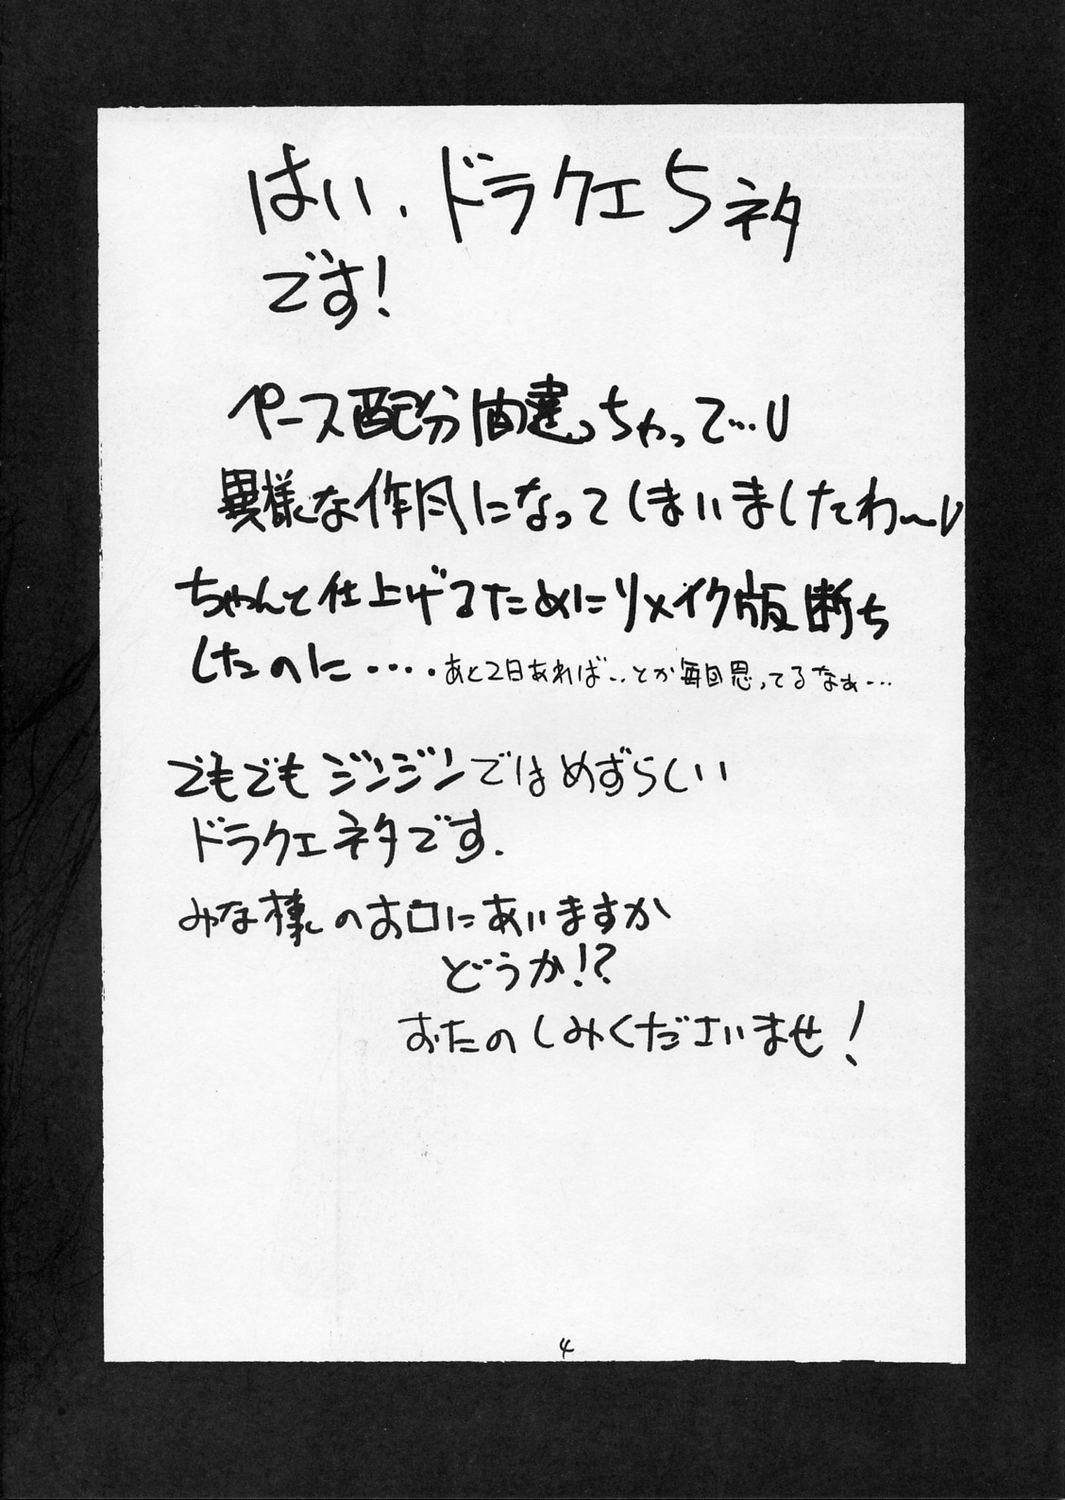 はい、ドラクエ5ネタ
です!
ペース配分間違っちゃって…U
異様な作风になってしまいましたわ〜U
ちゃんと仕上げるためにリメイク版断ち
したのに・・・・あと2日あれば・・とか毎回思ってるなぁ・・・
でもでもジンジンではめずらしい
ドラクエネタです.
みな様のお口にあいますか
どうか!?
おたのしみくださいませ!
4